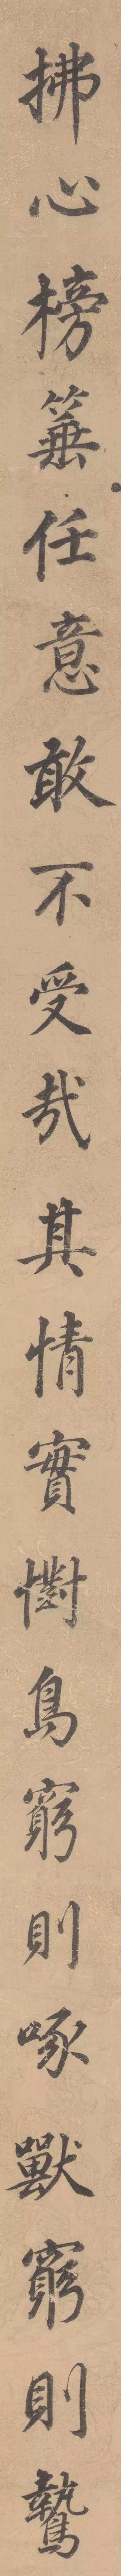 拂心榜箠任意敢不受哉其情實懟鳥窮則啄獸窮則鷙